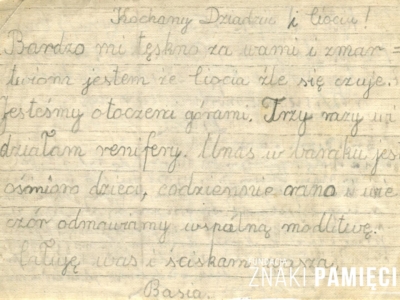 Kochany Dziadziu i Ciociu!
Bardzo mi tęskno za wami i zmar=
twiona jestem że Ciocia źle się czuje.
Jesteśmy otoczeni górami. Trzy razy wi
działam renifery. U nas w baraku jest
ośmioro dzieci, codziennie rano i wie
czór odmawiamy wspólną modlitwę.
Całuję was i ściskam wasza
Basia.
ZNAKI PAMIĘCI